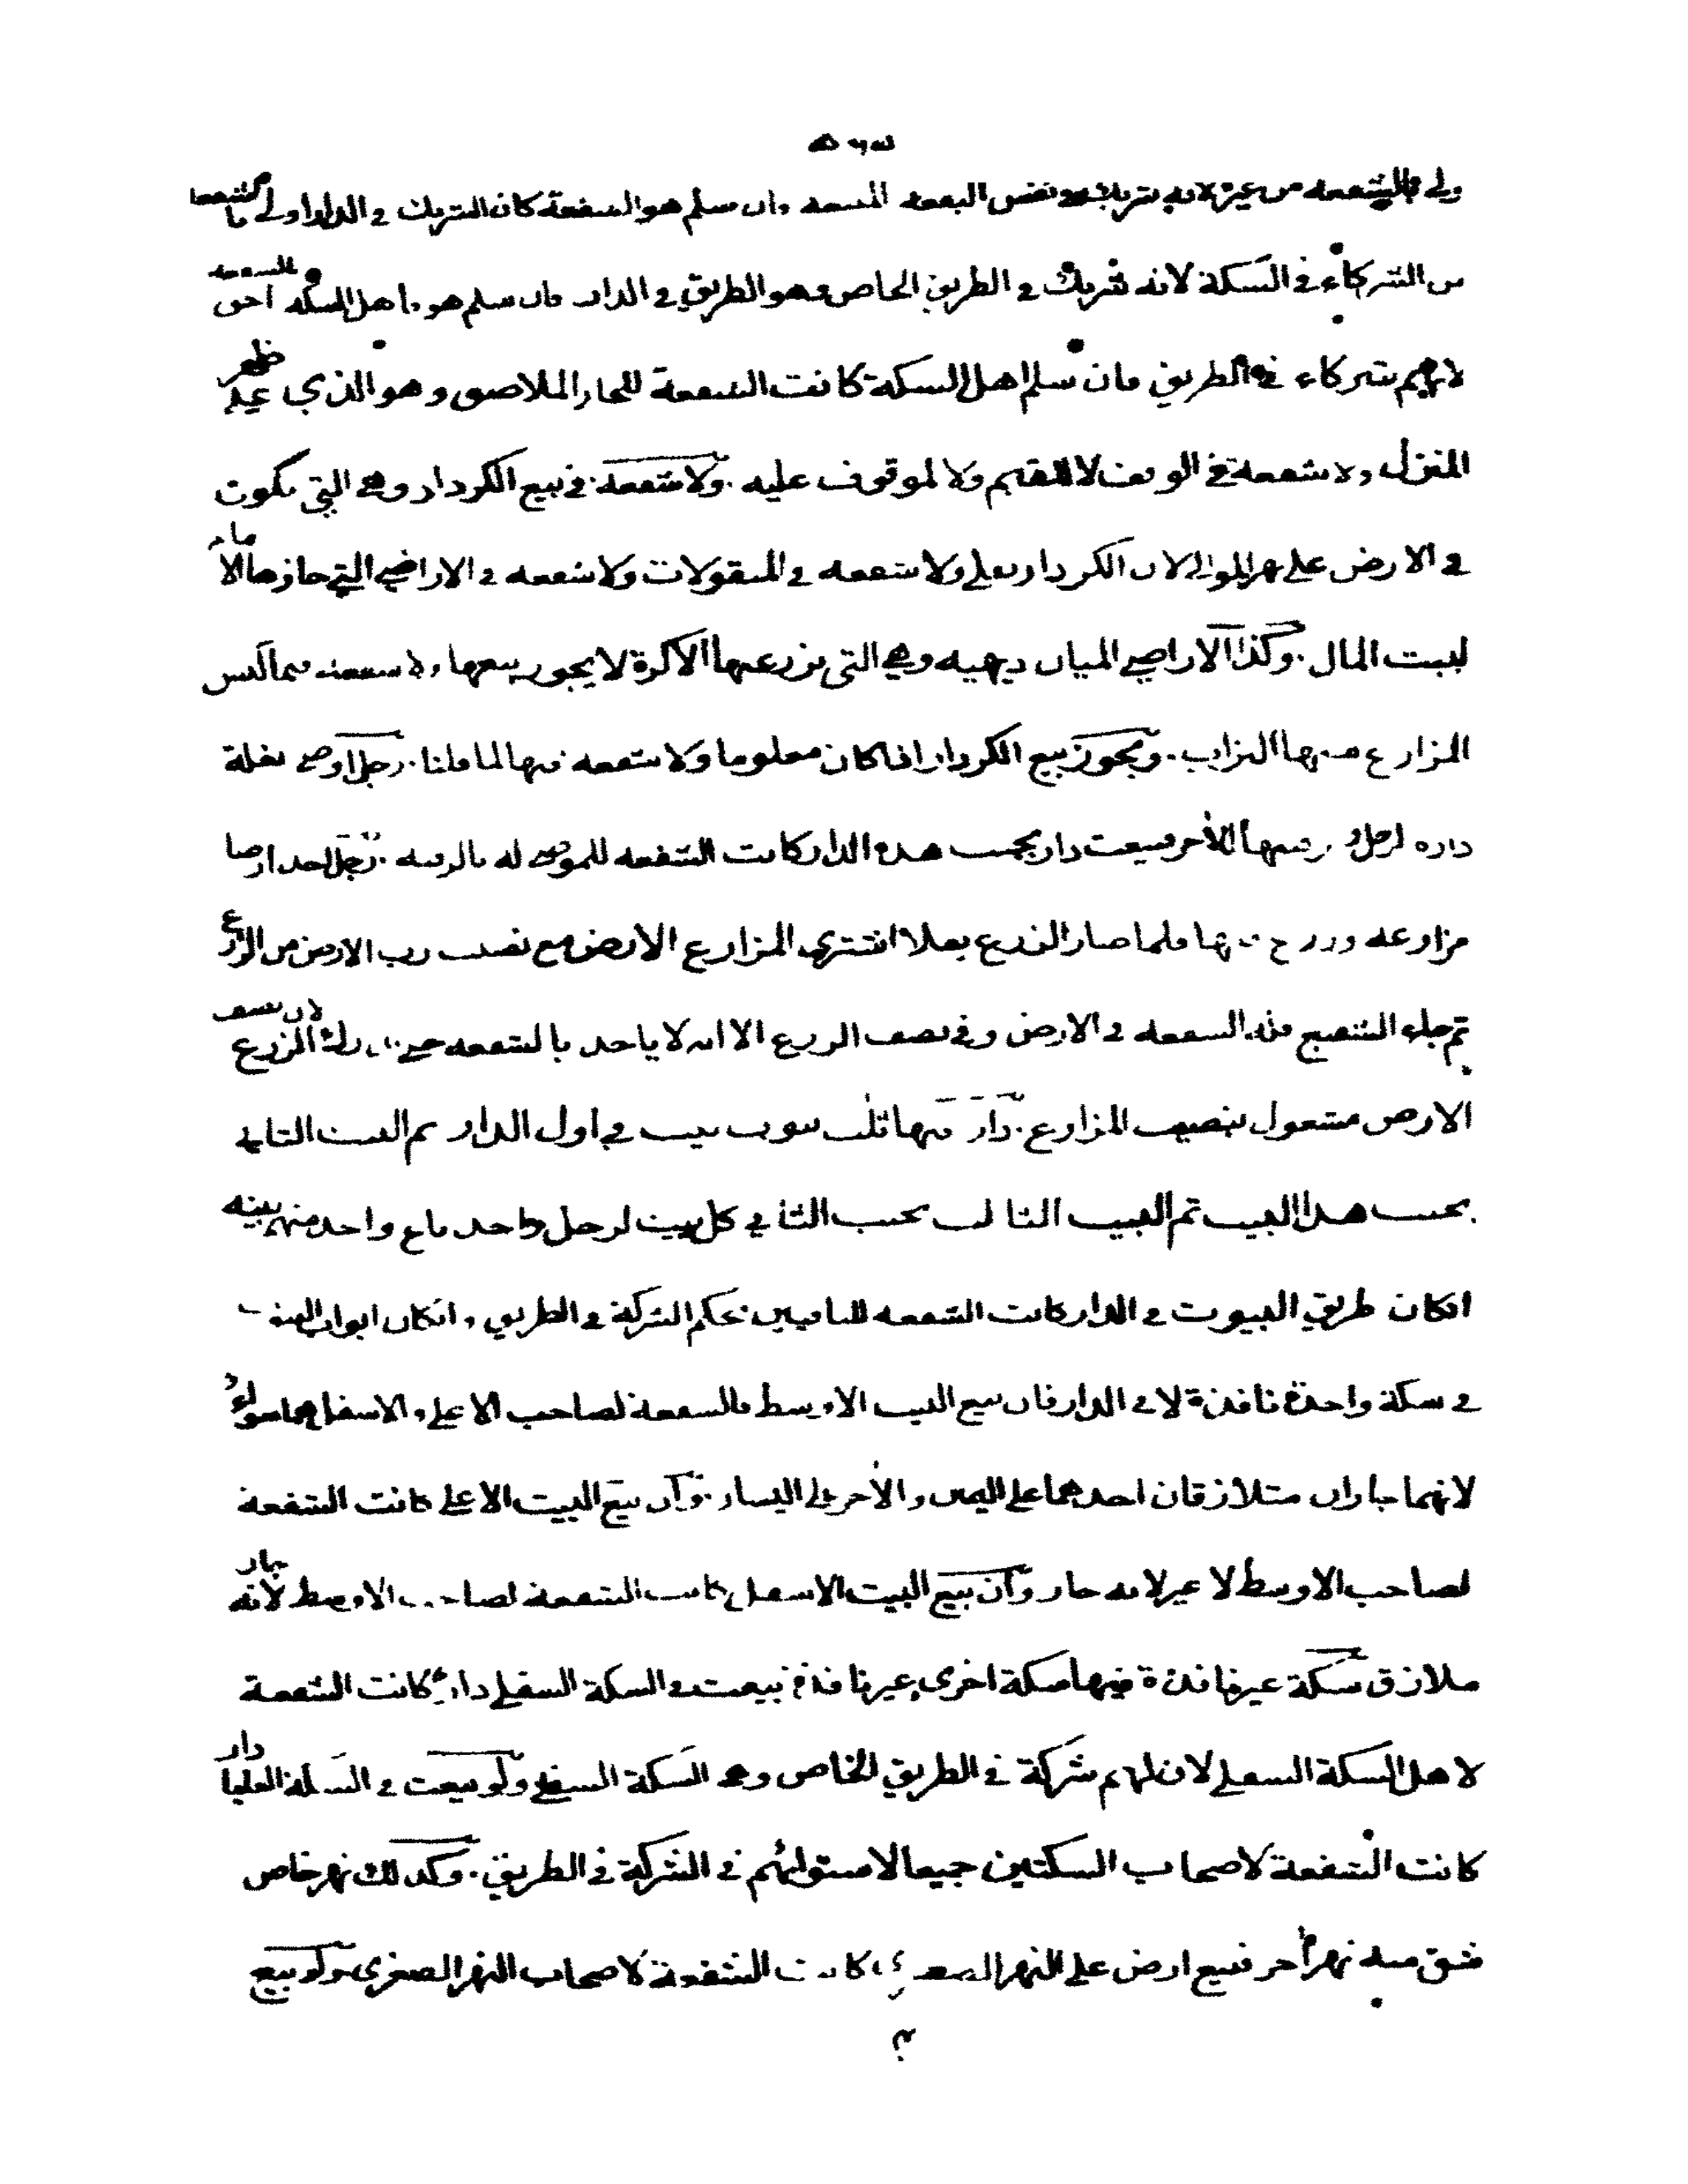 ولي بالشفعة من غيره لانه شريك في نفس البقعة المبيعة وان سلم هو الشفعة كان الشريك في الدار اولى بالشفعة
من الشركاء في السكة لانه شريك في الطريق الخاص وهو الطريق في الدار فان سلم هو فاهل السكة احق بالشفعة
لانهم شركاء في الطريق فان سلم اهل السكة كانت الشفعة للجار الملاصق وهو الذي على ظهر
المنزل ولا شفعة في الوقف لا للقيم ولا لموقوف عليه ولا شفعة في بيع الكردار وهي التي تكون
في الارض على نهر الموالي لان الكردار نقلي ولا شفعة في المنقولات ولا شفعة في الاراضي التي حازها الامام
لبيت المال وكذا الاراضي الميان ديهيه وهي التي يزرعها الاكرة لا يجوز بيعها ولا شفعة فيها
المزارع فيها التراب ويجوز بيع الكردار اذا كان معلوما ولا شفعة فيها لما قلنا رجل اوصى بغلة
داره لرجل ورقبتها لآخر فبيعت دار بجنب هذه الدار كانت الشفعة للموصى له بالرقبة رجل اخذ ارضا
مزارعة وزرع فيها فلما صار الزرع بقلا اشترى المزارع الارض مع نصيب رب الارض من الزرع
ثم جاء الشفيع فله الشفعة في الارض وفي نصف الزرع الا انه لا ياخذ بالشفعة حتى يدرك الزرع لان نصف
الارض مشغول بنصيب المزارع دار فيها ثلث بيوت بيت في اول الدار ثم البيت الثاني
بجنب هذا البيت ثم البيت الثالث بجنب الثاني كل بيت لرجل واحد باع واحد منهم بيته
انكان طريق البيوت في الدار كانت الشفعة للباقيين بحكم الشركة في الطريق وانكان ابواب البيوت
في سكة واحدة نافذة لا في الدار فان بيع البيت الاوسط فالشفعة لصاحب الاعلى والاسفل هما سواء
لانهما جاران متلازقان احدهما على اليمين والآخر على اليسار وان بيع البيت الاعلى كانت الشفعة
لصاحب الاوسط لا غير لانه جار وان بيع البيت الاسفل كانت الشفعة لصاحب الاوسط لانه جار
ملازق سكة غير نافذة فيها سكة اخرى غير نافذة بيعت في السكة السفلى دار كانت الشفعة
لاهل السكة السفلى لان لهم شركة في الطريق الخاص وهو السكة السفلى ولو بيعت في السكة العليا دار
كانت الشفعة لاصحاب السكتين جميعا لاستوائهم في الشركة في الطريق وكذلك نهر خاص
شق منه نهر آخر فبيع ارض على النهر الصغرى كانت الشفعة لاصحاب النهر الصغرى ولو بيع